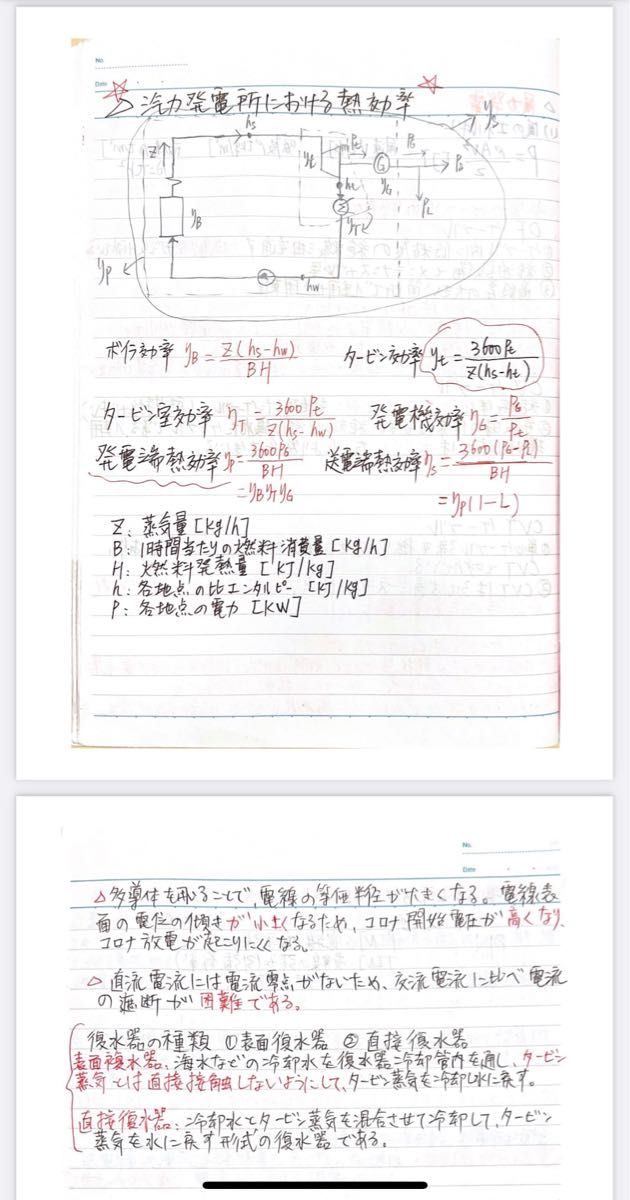 No.
Date
△汽力発電所における熱効率
hs
ηs
Z
ηt
Pt
G
PG
Ps
ηG
PL
ht
ηB
ηT
ηp
hw
ボイラ効率 ηB = Z(hs-hw)/BH
タービン効率 ηt = 3600Pt/Z(hs-ht)
タービン室効率 ηT = 3600Pt/Z(hs-hw)
発電機効率 ηG = PG/Pt
発電端熱効率 ηp = 3600PG/BH
送電端熱効率 ηs = 3600(PG-PL)/BH
= ηBηTηG
= ηp(1-L)
Z: 蒸気量 [kg/h]
B: 1時間当たりの燃料消費量 [kg/h]
H: 燃料発熱量 [KJ/kg]
h: 各地点の比エンタルピー [KJ/kg]
P: 各地点の電力 [KW]
No.
Date
△多導体を用いることで、電線の等価半径が大きくなる。電線表
面の電位の傾きが小さくなるため、コロナ開始電圧が高くなり、
コロナ放電が起こりにくくなる。
△直流電流には電流零点がないため、交流電流に比べ電流
の遮断が困難である。
復水器の種類 ①表面復水器 ②直接復水器
表面復水器: 海水などの冷却水を復水器冷却管内を通し、タービン
蒸気とは直接接触しないようにして、タービン蒸気を冷却し水に戻す。
直接復水器: 冷却水とタービン蒸気を混合させて冷却して、タービン
蒸気を水に戻す形式の復水器である。